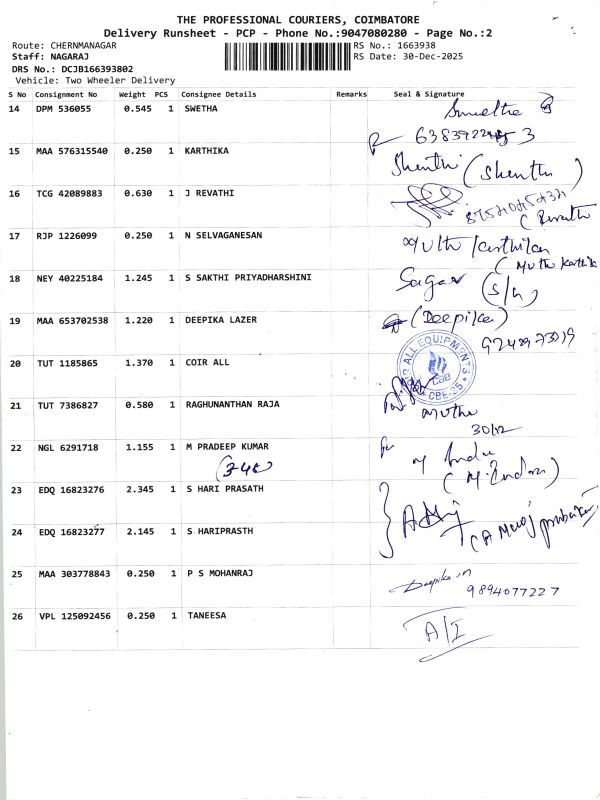 THE PROFESSIONAL COURIERS, COIMBATORE
Delivery Runsheet - PCP - Phone No.:9047080280 - Page No.:2
Route: CHERNMANAGAR RS No.: 1663938
Staff: NAGARAJ RS Date: 30-Dec-2025
DRS No.: DCJB166393802
Vehicle: Two Wheeler Delivery
S No Consignment No Weight PCS Consignee Details Remarks Seal & Signature
14 DPM 536055 0.545 1 SWETHA
15 MAA 576315540 0.250 1 KARTHIKA Shenthi (Shenthi)
16 TCG 42089883 0.630 1 J REVATHI
(Revathi
17 RJP 1226099 0.250 1 N SELVAGANESAN Muthu Karthika
(Muthu Karthika
18 NEY 40225184 1.245 1 S SAKTHI PRIYADHARSHINI Sagar (S/h)
19 MAA 653702538 1.220 1 DEEPIKA LAZER (Deepika)
20 TUT 1185865 1.370 1 COIR ALL
COIR ALL EQUIPMENTS
Cbe
CBE-35
21 TUT 7386827 0.580 1 RAGHUNANTHAN RAJA Muthu
30/12
22 NGL 6291718 1.155 1 M PRADEEP KUMAR M Indra
(348) (M. Indra)
23 EDQ 16823276 2.345 1 S HARI PRASATH
24 EDQ 16823277 2.145 1 S HARIPRASTH
25 MAA 303778843 0.250 1 P S MOHANRAJ Deepika.m
9894077227
26 VPL 125092456 0.250 1 TANEESA A/I